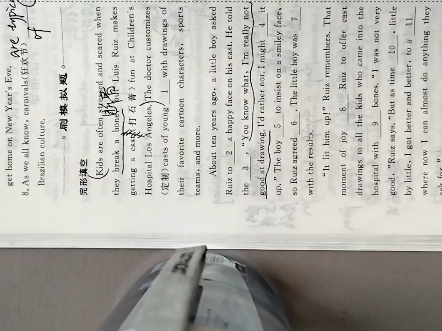 are typical
of
get home on New Year's Eve.
8. As we all know, carnivals(狂欢节)
Brazilian culture.
刷模拟题
完形填空
Kids are often stressed and scared when
they break a bone, but Luis Ruiz makes
getting a cast(打石膏) fun at Children's
Hospital Los Angeles. The doctor customizes
(定制) casts of young 1 with drawings of
their favorite cartoon characters, sports
teams, and more.
About ten years ago, a little boy asked
Ruiz to 2 a happy face on his cast. He told
the 3 , "You know what, I'm really not
good at drawing. I'd rather not. I might 4 it
up." The boy 5 to insist on a smiley face,
so Ruiz agreed 6 . The little boy was 7
with the results.
"It lit him up!" Ruiz remembers. That
moment of joy 8 Ruiz to offer cast
drawings to all the kids who came into the
hospital with 9 bones. "I was not very
good," Ruiz says. "But as time 10 , little
by little, I got better and better, to a 11
where now I can almost do anything they
ask for."